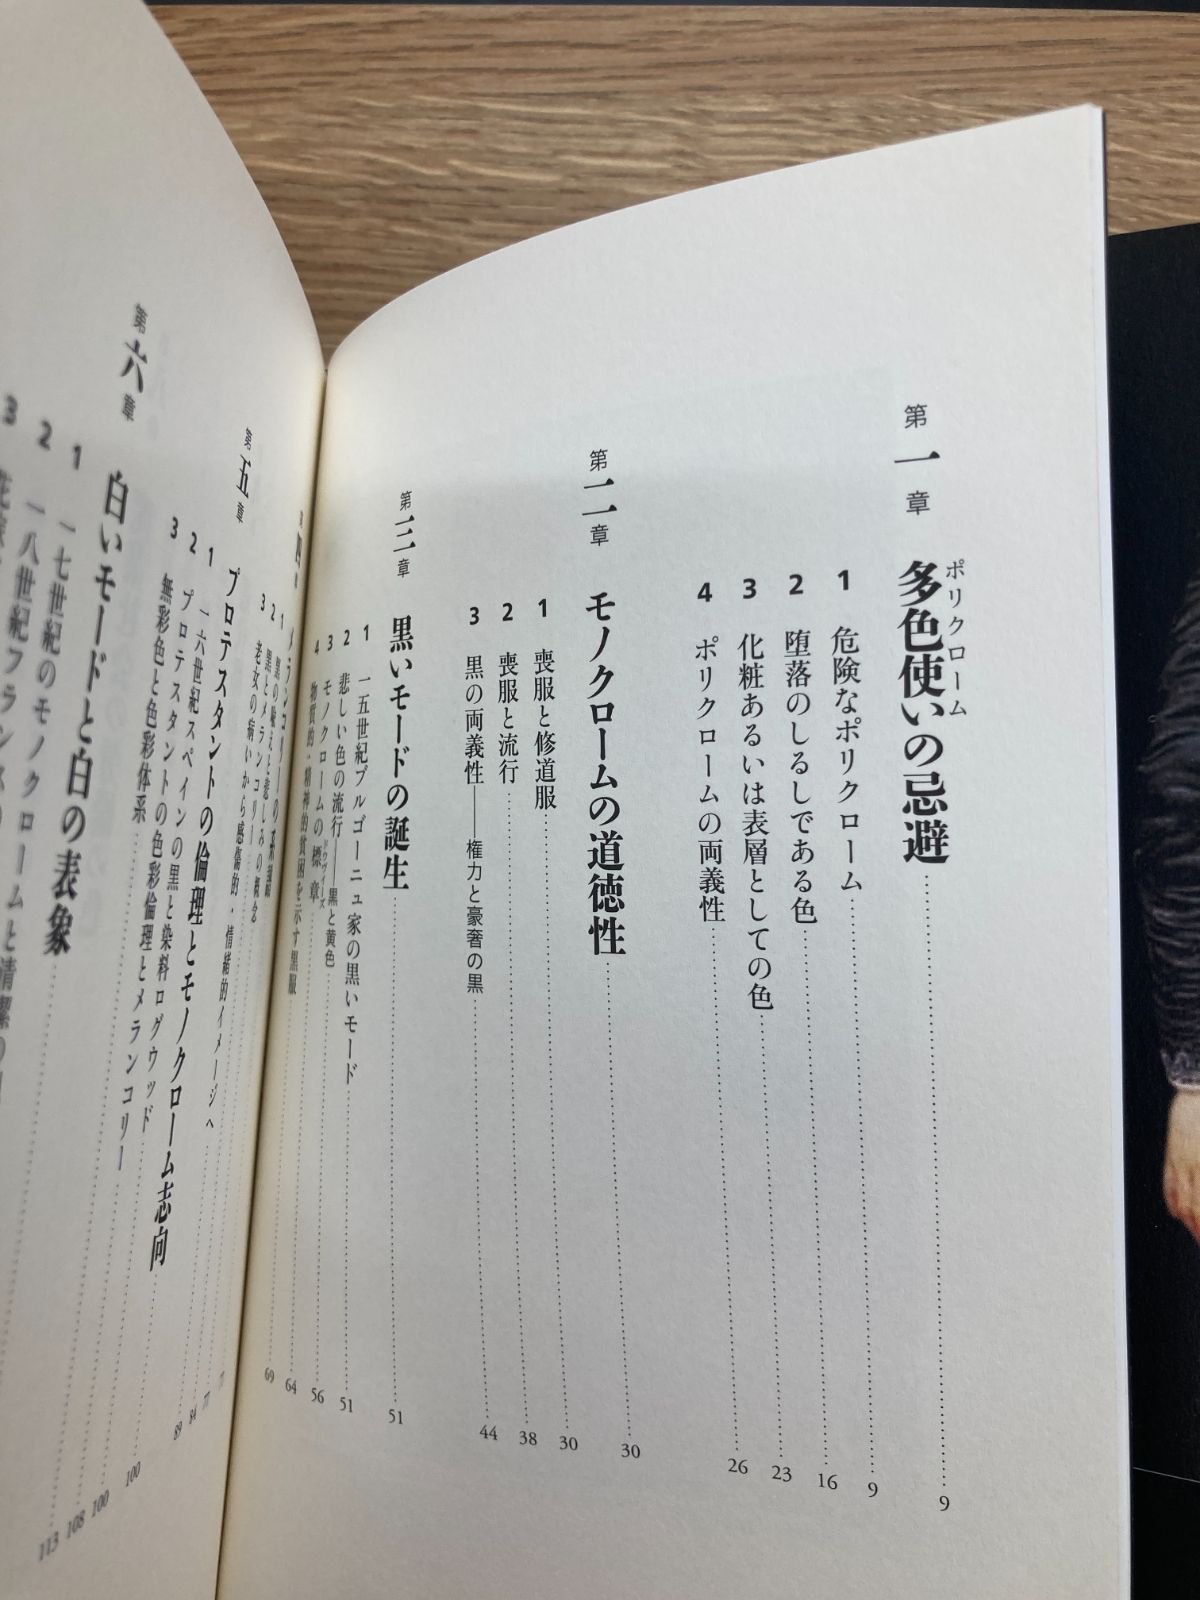 第一章 多色使いの忌避 9
ポリクローム
1 危険なポリクローム 9
2 堕落のしるしである色 16
3 化粧あるいは表層としての色 23
4 ポリクロームの両義性 26
第二章 モノクロームの道徳性 30
1 喪服と修道服 30
2 喪服と流行 38
3 黒の両義性――権力と豪奢の黒 44
第三章 黒いモードの誕生 51
1 一五世紀ブルゴーニュ家の黒いモード 51
2 悲しい色の流行――黒と黄色 56
3 モノクロームの標章 64
ドゥヴィーズ
4 物質的・精神的貧困を示す黒服 69
メランコリー
1 黒の
2 黒とメランコリー
3 老女の病いから感傷的・情緒的イメージへ
第五章 プロテスタントの倫理とモノクローム志向
1 一六世紀スペインの黒と染料ログウッド
2 プロテスタントの色彩倫理とメランコリー
3 無彩色と色彩体系
第六章 白いモードと白の表象
1 一七世紀のモノクロームと清潔の
2 一八世紀フランスの
3
77
77
84
89
100
100
108
113